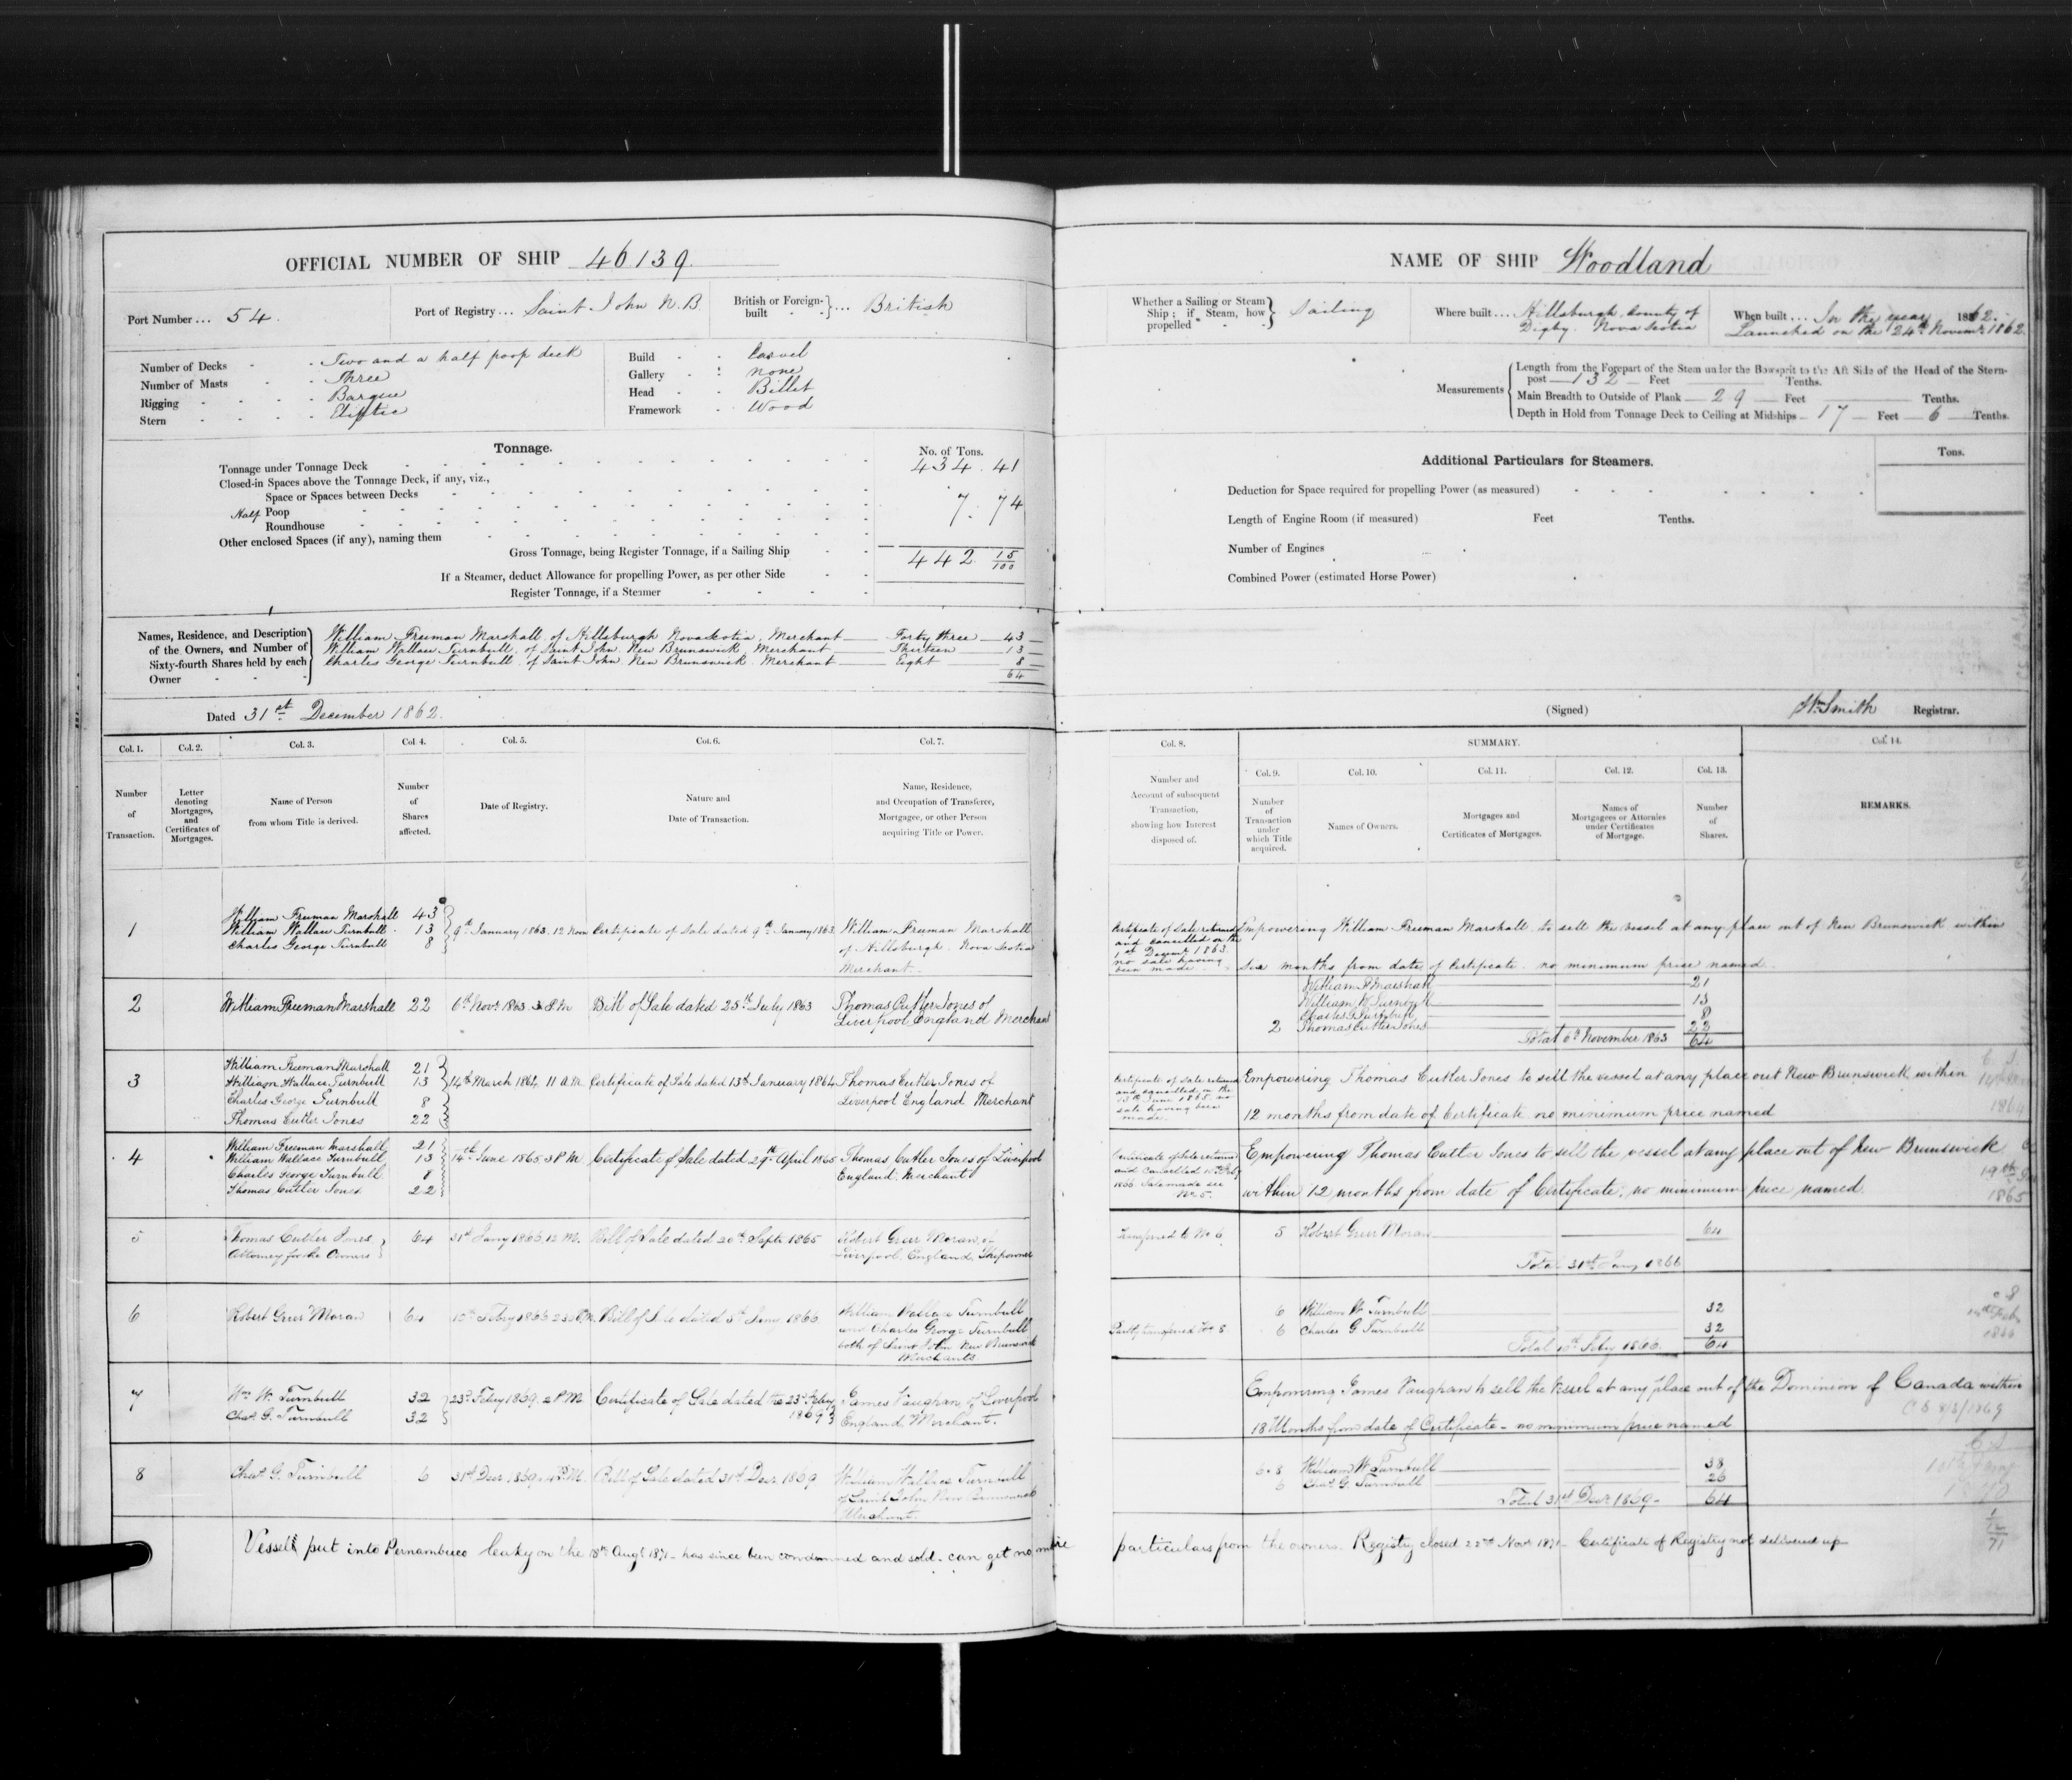 OFFICIAL NUMBER OF SHIP 46139.
Port Number ... 54.
Port of Registry ... Saint John N.B.
British or Foreign-built } ... British
Number of Decks - Two and a half poop deck
Number of Masts - Three
Rigging - Barque
Stern - Eliptic
Build - Carvel
Gallery - none
Head - Billet
Framework - Wood
Tonnage.
No. of Tons.
Tonnage under Tonnage Deck 434.41
Closed-in Spaces above the Tonnage Deck, if any, viz.,
Space or Spaces between Decks
Half Poop 7.74
Roundhouse
Other enclosed Spaces (if any), naming them
Gross Tonnage, being Register Tonnage, if a Sailing Ship 442 15/100
If a Steamer, deduct Allowance for propelling Power, as per other Side
Register Tonnage, if a Steamer
Names, Residence, and Description of the Owners, and Number of Sixty-fourth Shares held by each Owner
William Freeman Marshall of Hillsburgh Nova Scotia, Merchant — Forty three — 43
William Wallace Turnbull, of Saint John New Brunswick, Merchant — Thirteen — 13
Charles George Turnbull, of Saint John New Brunswick Merchant — Eight — 8
64
Dated 31st December 1862.
Col. 1. Col. 2. Col. 3. Col. 4. Col. 5. Col. 6. Col. 7.
Number of Transaction.
Letter denoting Mortgages, and Certificates of Mortgages.
Name of Person from whom Title is derived.
Number of Shares affected.
Date of Registry.
Nature and Date of Transaction.
Name, Residence, and Occupation of Transferee, Mortgagee, or other Person acquiring Title or Power.
1
William Freeman Marshall 43
William Wallace Turnbull 13
Charles George Turnbull 8
9th January 1863. 12 Noon
Certificate of Sale dated 9th January 1863
William Freeman Marshall
of Hillsburgh Nova Scotia
Merchant.
2
William Freeman Marshall 22
6th Novr 1863 3 P.M
Bill of Sale dated 25th July 1863
Thomas Cutler Jones of
Liverpool England Merchant
3
William Freeman Marshall 21
William Wallace Turnbull 13
Charles George Turnbull 8
Thomas Cutler Jones 22
14th March 1864 11 A.M.
Certificate of Sale dated 13th January 1864
Thomas Cutler Jones of
Liverpool England Merchant
4
William Freeman Marshall 21
William Wallace Turnbull 13
Charles George Turnbull 8
Thomas Cutler Jones 22
14th June 1865 3 P.M.
Certificate of Sale dated 29th April 1865
Thomas Cutler Jones of Liverpool
England. Merchant
5
Thomas Cutler Jones
Attorney for the Owners
64
31st Jany 1866 12 M.
Bill of Sale dated 20th Septr 1865
Robert Greer Moran of
Liverpool England Shipowner
6
Robert Greer Moran 64
10th Feby 1866
Bill of Sale dated 5th Jany 1866
William Wallace Turnbull
and Charles George Turnbull
both of Saint John New Brunswick
Merchants
7
Wm W. Turnbull 32
Chas G. Turnbull 32
23rd Feby 1869. 2 P.M.
Certificate of Sale dated the 23rd Feby
1869
James Vaughan of Liverpool
England, Merchant.
8
Chas G. Turnbull 6
31st Decr 1869. 4 P.M.
Bill of Sale dated 31st Decr 1869
William Wallace Turnbull
of Saint John New Brunswick
Merchant.
Vessel put into Pernambuco leaky on the 18th Augt 1871 - has since been condemned and sold. can get no more
NAME OF SHIP Woodland
Whether a Sailing or Steam Ship; if Steam, how propelled } Sailing
Where built ... Hillsburgh, County of
Digby. Nova Scotia
When built ... In the year 1862.
Launched on the 24th November 1862
Measurements
Length from the Forepart of the Stem under the Bowsprit to the Aft Side of the Head of the Stern-
post 132 Feet Tenths.
Main Breadth to Outside of Plank 29 Feet Tenths.
Depth in Hold from Tonnage Deck to Ceiling at Midships 17 Feet 6 Tenths.
Additional Particulars for Steamers.
Tons.
Deduction for Space required for propelling Power (as measured)
Length of Engine Room (if measured) Feet Tenths.
Number of Engines
Combined Power (estimated Horse Power)
(Signed) Wm Smith Registrar.
Col. 8. SUMMARY. Col. 14.
Col. 9. Col. 10. Col. 11. Col. 12. Col. 13.
Number and Account of subsequent Transaction, showing how Interest disposed of.
Number of Transaction under which Title acquired.
Names of Owners.
Mortgages and Certificates of Mortgages.
Names of Mortgagees or Attornies under Certificates of Mortgage.
Number of Shares.
REMARKS.
Certificate of Sale returned
and cancelled on the
1st Decemr 1863
no sale having
been made
Empowering William Freeman Marshall to sell the vessel at any place out of New Brunswick within
Six months from date of Certificate. no minimum price named.
William F Marshall 21
William W Turnbull 13
Charles G Turnbull 8
2 Thomas Cutler Jones 22
Total 6th November 1863 64
Certificate of Sale returned
and cancelled on the
13th June 1865 no
sale having been
made
Empowering Thomas Cutler Jones to sell the vessel at any place out New Brunswick within
12 months from date of Certificate no minimum price named
1864
Certificate of Sale returned
and Cancelled
1866. Sale made see
No 5.
Empowering Thomas Cutler Jones to sell the vessel at any place out of New Brunswick
within 12 months from date of Certificate, no minimum price named.
1865
Transferred to No 6
5 Robert Greer Moran 64
Total 31st Jany 1866
6 William W. Turnbull 32
Partly transferred No 8
6 Charles G Turnbull 32
Total 10th Feby 1866. 64
1866
Empowering James Vaughan to sell the Vessel at any place out of the Dominion of Canada within
18 Months from date of Certificate - no minimum price named
C S 8/3/1869
6.8 William W Turnbull 38
6 Chas G. Turnbull 26
Total 31st Decr 1869 - 64
particulars from the owners. Registry closed 22nd Novr 1871 - Certificate of Registry not delivered up